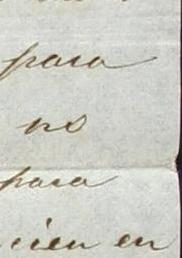 para
no
para
cien en